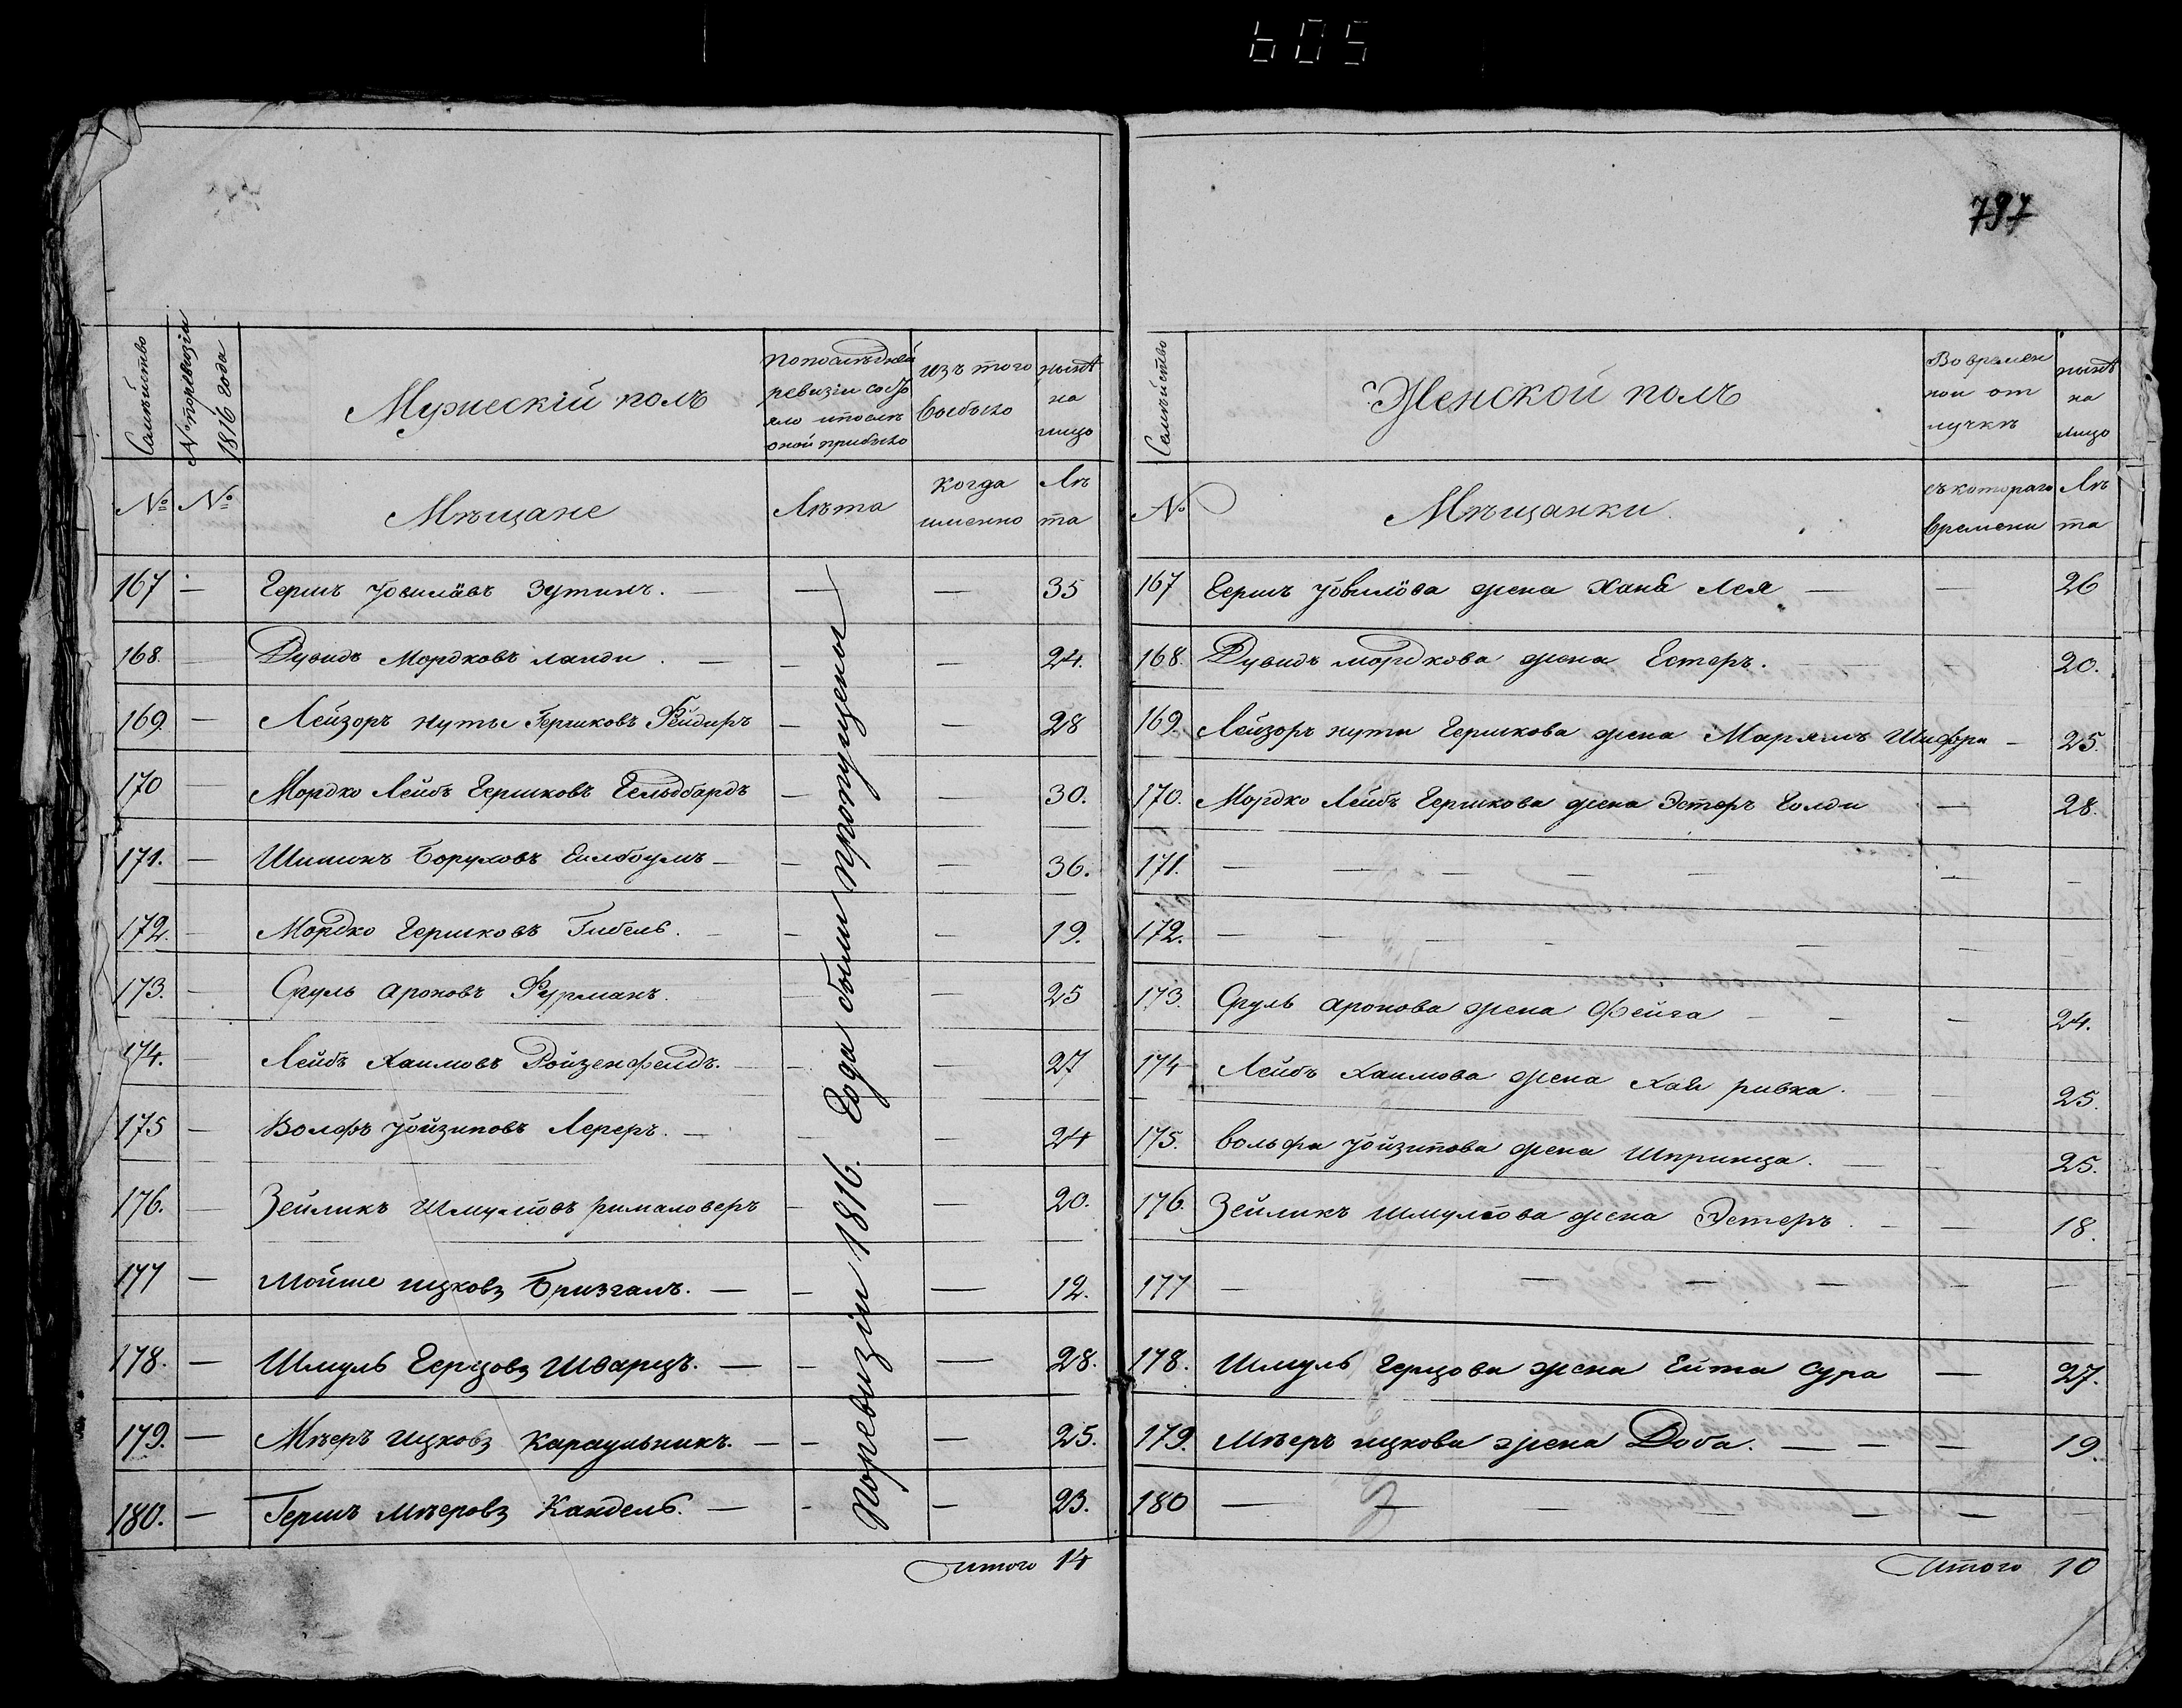 605
797
Семѣйство
№ поревизіи 1816 года
Мужескій полъ
попослѣдней ревизіи состояло ипослѣ оной прибыло
изъ того выбыло
нынѣ на лицо
№ № Мѣщане Лѣта когда именно Лѣта
167 — Гершъ Іовилёвъ Зутинъ. — — — 35
168. — Дувидъ Мордковъ ланди. — — — 24.
169. — Лейзоръ нуты Гершковъ Фейдиръ — — 28
170 — Мордко Лейбъ Гершковъ Гельдбардъ — — 30.
171. — Шимонъ Боруховъ Еилбоумъ — — — 36.
172. — Мордко Гершковъ Гибель. — — — 19.
173. — Сруль Ароновъ Фурманъ. — — 25
174. — Лейбъ Хаимовъ Ройзенфелдъ. — — — 27
175 — Волфъ Іойзиповъ Лереръ. — — — 24
176. — Зейликъ Шмулювъ рималоверъ — — 20.
177 — Мойше ицковъ Бризгалъ. — — — 12.
178. — Шмуль Герцовъ Шварцъ. — — — 28.
179. — Мѣеръ ицковъ Караульникъ. — — — 25.
180. — Гершъ Мѣеровъ Кандель. — — — 23.
поревизіи 1816. Года были пропущены
итого 14
Семѣйство
Женской полъ
Вовременной отлучкѣ
нынѣ на лицо
№ Мѣщанки съкотораго времени Лѣта
167 Гершъ Іовилёва жена Хана Лея — — 26
168. Дувидъ мордкова жена Естеръ. — 20.
169. Лейзоръ нути Гершкова жена Марямъ Шифра — 25.
170. Мордко Лейбъ Гершкова жена Эстеръ Голди — 28.
171. — — — — — — — —
172. — — — — — —
173. Сруль Аронова жена Фейга — — — 24.
174 Лейбъ Хаимова жена Хая ривка. — — 25.
175. вольфа Іойзипова жена Шпринца. — — 25.
176. Зейликъ Шмулюва жена Эстеръ. — — 18.
177 — — — — — —
178. Шмуль Герцова жена Ейта Сура — 27.
179. Мѣеръ ицкова жена Доба. — — — 19.
180 — — — — — — —
Итого 10